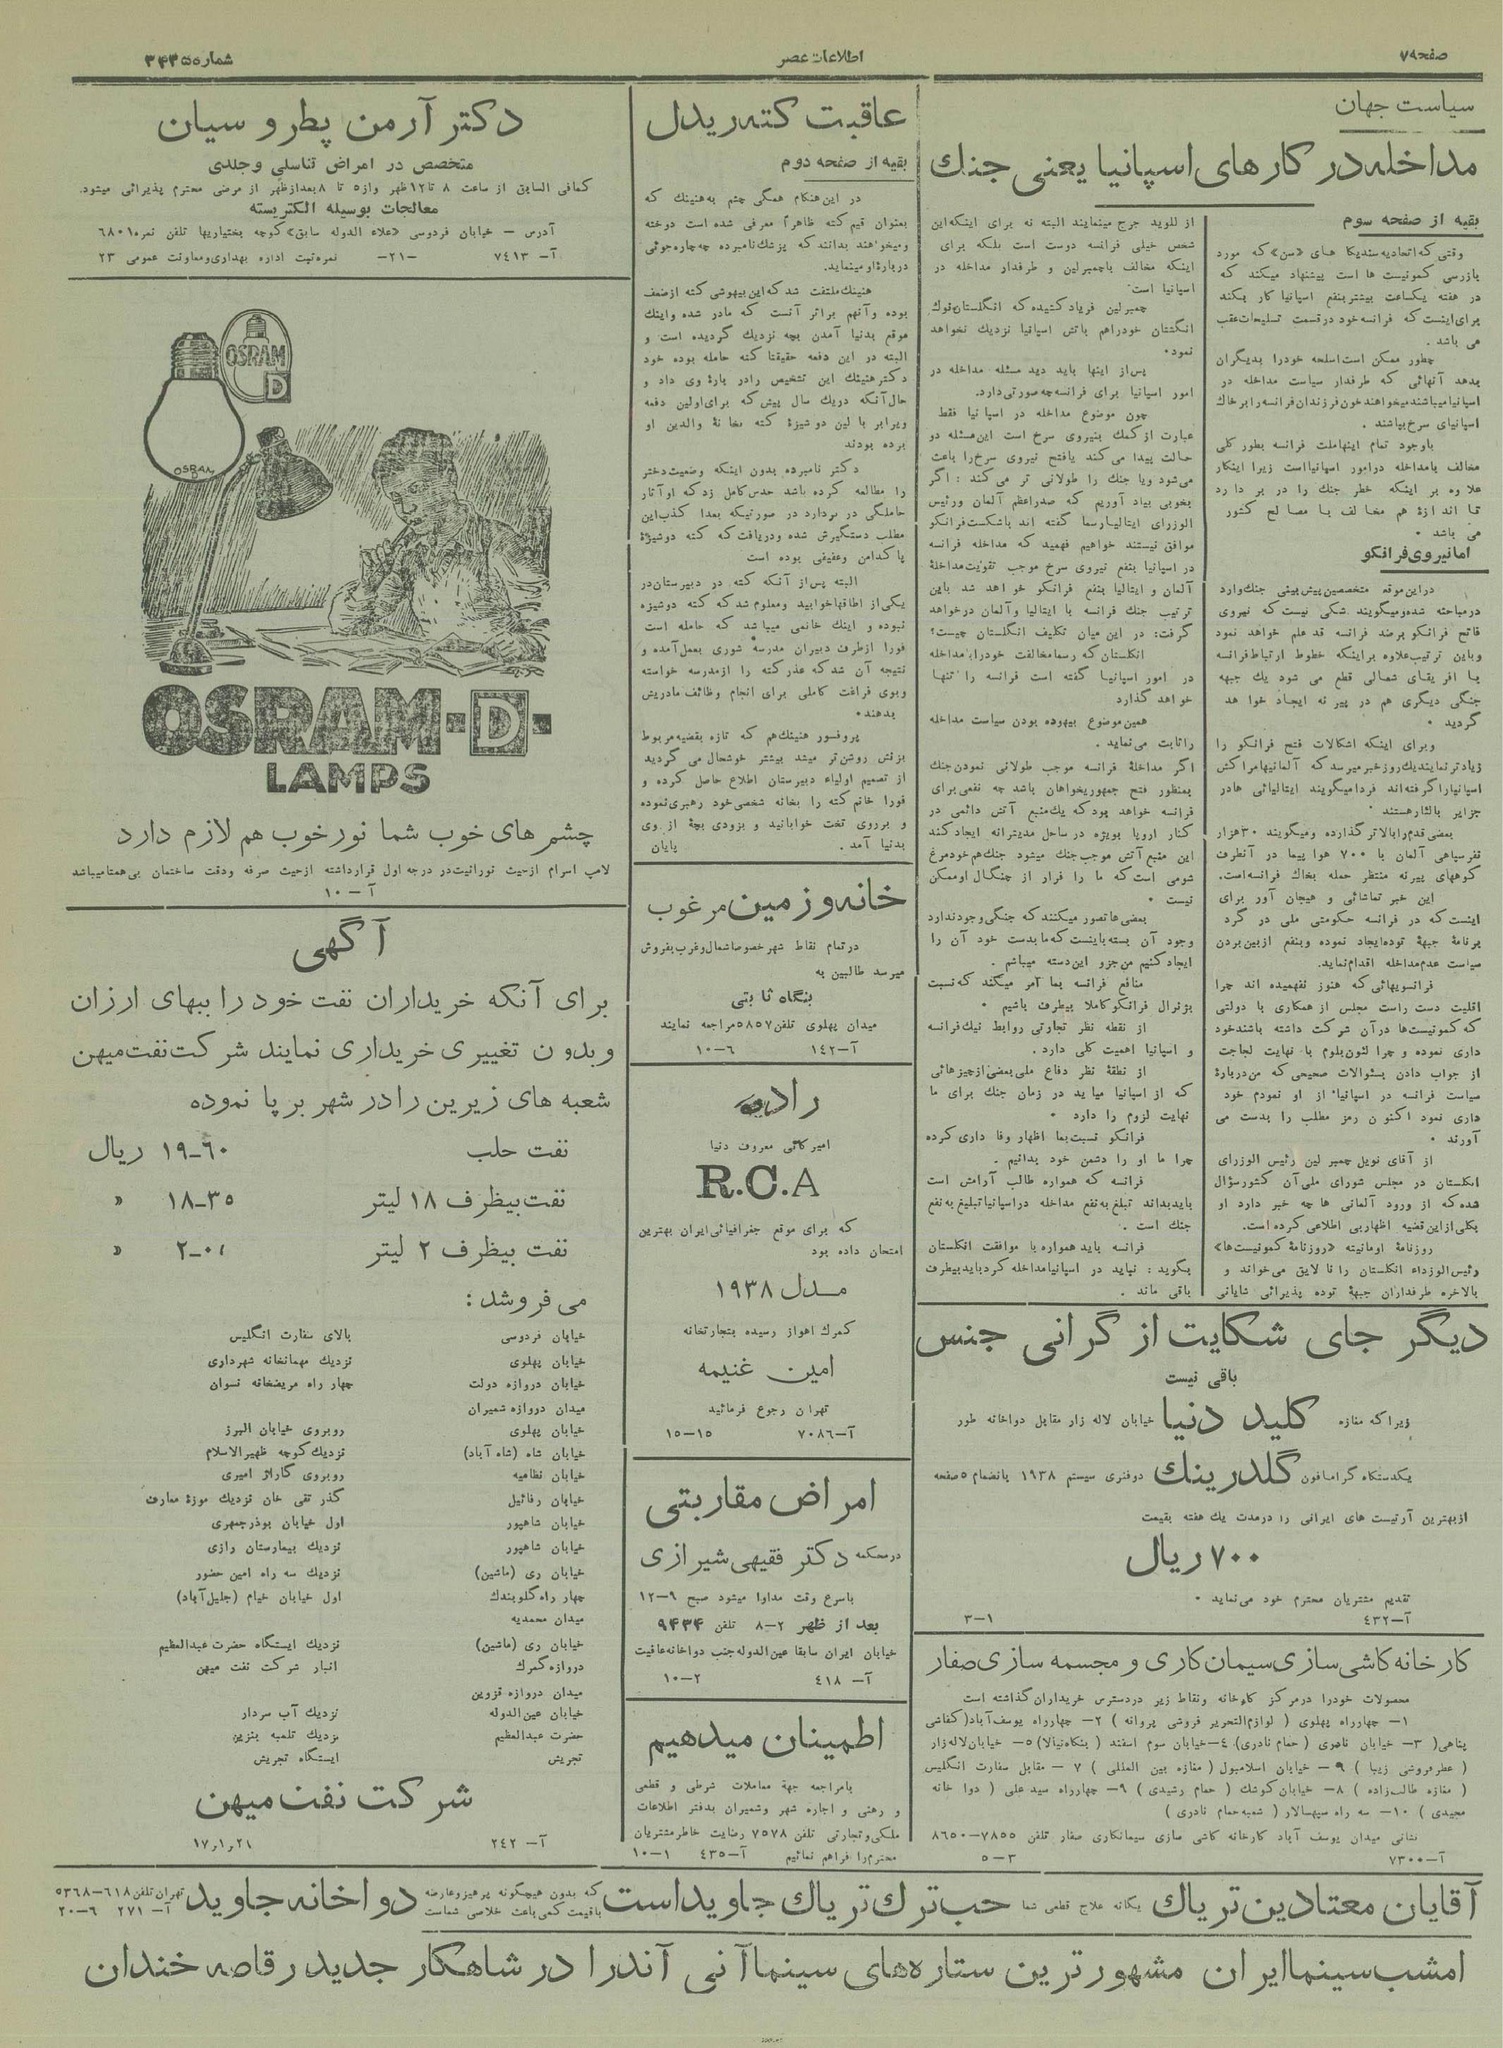 صفحه ۷۹
اطلاعات عصر
شماره ۳۴۳۵
سیاست جهان
مداخله در کارهای اسپانیا یعنی جنك
بقیه از صفحه سوم
وقتی که اتحادیه سندیکا های «سن» که مورد
بازرسی کمونیست ها است پیشنهاد میکند که
در هفته یکساعت بیشتر بنفع اسپانیا کار بکند
برای اینست که فرانسه خود در قسمت تسلیحات عقب
می باشد .
چطور ممکن است اسلحه خود را بدیگران
بدهد آنهائی که طرفدار سیاست مداخله در
اسپانیا میباشند میخواهند خون فرزندان فرانسه را بر خاك
اسپانیای سرخ بپاشند .
باوجود تمام اینها ملت فرانسه بطور کلی
مخالف با مداخله در امور اسپانیا است زیرا اینکار
علاوه بر اینکه خطر جنك را در بر دارد
تا اندازۀ هم مخالف با مصالح کشور
می باشد .
اما نیروی فرانکو
در این موقع متخصصین پیش بینی جنك وارد
در مباحثه شده و میگویند شکی نیست که نیروی
فاتح فرانکو بر ضد فرانسه قد علم خواهد نمود
و باین ترتیب علاوه بر اینکه خطوط ارتباط فرانسه
با افریقای شمالی قطع می شود یك جبهه
جنگی دیگری هم در پیرنه ایجاد خواهد
گردید .
و برای اینکه اشکالات فتح فرانکو را
زیادتر نمایند یك روز خبر میرسد که آلمانیها مراکش
اسپانیا را گرفته اند فردا میگویند ایتالیائی ها در
جزایر بالئار هستند .
بعضی قدم را بالاتر گذارده و میگویند ۳۰ هزار
نفر سپاهی آلمان با ۷۰۰ هوا پیما در آنطرف
کوههای پیرنه منتظر حمله بخاك فرانسه است.
این خبر تماشائی و هیجان آور برای
اینست که در فرانسه حکومتی ملی در گرد
برنامۀ جبهۀ توده ایجاد نموده و بنفع ازبین بردن
سیاست عدم مداخله اقدام نماید.
فرانسویهائی که هنوز نفهمیده اند چرا
اقلیت دست راست مجلس از همکاری با دولتی
که کمونیست ها در آن شرکت داشته باشند خود
داری نموده و چرا لئون بلوم با نهایت لجاجت
از جواب دادن بسئوالات صحیحی که من در بارۀ
سیاست فرانسه در اسپانیا از او نمودم خود
داری نمود اکنون رمز مطلب را بدست می
آورند .
از آقای نویل چمبر لین رئیس الوزرای
انگلستان در مجلس شورای ملی آن کشور سؤال
شده که از ورود آلمانی ها چه خبر دارد او
بکلی از این قضیه اظهار بی اطلاعی کرده است.
روزنامۀ اومانیته «روزنامۀ کمونیست ها»
رئیس الوزراء انگلستان را نالایق می خواند و
بالاخره طرفداران جبهۀ توده پذیرائی شایانی
از للوید جرج مینمایند البته نه برای اینکه این
شخص خیلی فرانسه دوست است بلکه برای
اینکه مخالف با چمبرلین و طرفدار مداخله در
اسپانیا است
چمبرلین فریاد کشیده که انگلستان نوك
انگشتان خود را هم باتش اسپانیا نزدیك نخواهد
نمود .
پس از اینها باید دید مسئله مداخله در
امور اسپانیا برای فرانسه چه صورتی دارد.
چون موضوع مداخله در اسپانیا فقط
عبارت از کمك بنیروی سرخ است این مسئله دو
حالت پیدا می کند یا فتح نیروی سرخ را باعث
می شود و یا جنك را طولانی تر می کند : اگر
بخوبی بیاد آوریم که صدراعظم آلمان و رئیس
الوزرای ایتالیا رسما گفته اند با شکست فرانکو
موافق نیستند خواهیم فهمید که مداخله فرانسه
در اسپانیا بنفع نیروی سرخ موجب تقویت مداخلۀ
آلمان و ایتالیا بنفع فرانکو خواهد شد باین
ترتیب جنك فرانسه با ایتالیا و آلمان در خواهد
گرفت: در این میان تکلیف انگلستان چیست؟
انگلستان که رسما مخالفت خود را با مداخله
در امور اسپانیا گفته است فرانسه را تنها
خواهد گذارد
همین موضوع بیهوده بودن سیاست مداخله
را ثابت می نماید .
اگر مداخلۀ فرانسه موجب طولانی نمودن جنك
بمنظور فتح جمهوریخواهان باشد چه نفعی برای
فرانسه خواهد بود که یك منبع آتش دائمی در
کنار اروپا بویژه در ساحل مدیترانه ایجاد کند
این منبع آتش موجب جنك میشود جنك هم خود مرغ
شومی است که ما را فرار از چنگال او ممکن
نیست .
بعضی ها تصور میکنند که جنگی وجود ندارد
وجود آن بسته باینست که ما بدست خود آن را
ایجاد کنیم من جزو این دسته میباشم .
منافع فرانسه بما امر میکند که نسبت
بژنرال فرانکو کاملا بیطرف باشیم .
از نقطه نظر تجارتی روابط نیك فرانسه
و اسپانیا اهمیت کلی دارد .
از نطقۀ نظر دفاع ملی بعضی از چیز هائی
که از اسپانیا میاید در زمان جنك برای ما
نهایت لزوم را دارد .
فرانکو نسبت بما اظهار وفا داری کرده
چرا ما او را دشمن خود بدانیم .
فرانسه که همواره طالب آرامش است
باید بداند تبلیغ به نفع مداخله در اسپانیا تبلیغ به نفع
جنك است .
فرانسه باید همواره با موافقت انگلستان
بگوید : نباید در اسپانیا مداخله کرد باید بیطرف
باقی ماند .
دیگر جای شکایت از گرانی جنس
باقی نیست
زیرا که مغازه کلید دنیا خیابان لاله زار مقابل دواخانه طور
یکدستگاه گرامافون گلدرینك دو فنری سیستم ۱۹۳۸ بانضمام ۵ صفحه
از بهترین آرتیست های ایرانی را در مدت یك هفته بقیمت
۷۰۰ ریال
تقدیم مشتریان محترم خود می نماید .
آ-۴۳۲ ۳-۱
کارخانه کاشی سازی سیمان کاری و مجسمه سازی صفار
محصولات خود را در مرکز کارخانه و نقاط زیر در دسترس خریداران گذاشته است
۱- چهارراه پهلوی ( لوازم التحریر فروشی پروانه ) ۲- چهارراه یوسف آباد( کفاشی
پناهی( ۳- خیابان ناصری ( حمام نادری) ۴- خیابان سوم اسفند ( بنگاه نیالا) ۵- خیابان لاله زار
( عطر فروشی زیبا ) ۶- خیابان اسلامبول ( مغازه بین المللی ) ۷ - مقابل سفارت انگلیس
( مغازه طالب زاده ) ۸- خیابان کوشك ( حمام رشیدی ) ۹- چهارراه سید علی ( دوا خانه
مجیدی ) ۱۰- سه راه سپهسالار ( شعبه حمام نادری )
نشانی میدان یوسف آباد کارخانه کاشی سازی سیمانکاری صفار تلفن ۷۸۵۵-۸۶۵۰
آ-۷۳۰۰ ۵-۳
عاقبت کته ریدل
بقیه از صفحه دوم
در این هنگام همگی چشم به هنینك که
بعنوان قیم کته ظاهراً معرفی شده است دوخته
و میخواهند بدانند که پزشك نامبرده چه چاره جوئی
در بارۀ او مینماید.
هنینك ملتفت شد که این بیهوشی کته از ضعف
بوده و آنهم براثر آنست که مادر شده و اینك
موقع بدنیا آمدن بچه نزدیك گردیده است و
البته در این دفعه حقیقتا کته حامله بوده خود
دکتر هنینك این تشخیص را در بارۀ وی داد و
حال آنکه در یك سال پیش که برای اولین دفعه
ویرا بر بالین دوشیزۀ کته بخانۀ والدین او
برده بودند
دکتر نامبرده بدون اینکه وضعیت دختر
را مطالعه کرده باشد حدس کامل زد که او آثار
حاملگی در بر دارد در صورتیکه بعدا کذب این
مطلب دستگیرش شده و دریافت که کته دوشیزۀ
پاکدامن و عفیفی بوده است
البته پس از آنکه کته در دبیرستان در
یکی از اطاقها خوابید و معلوم شد که کته دوشیزه
نبوده و اینك خانمی میباشد که حامله است
فورا از طرف دبیران مدرسه شوری بعمل آمده و
نتیجه آن شد که عذر کته را از مدرسه خواسته
و بوی فراغت کاملی برای انجام وظائف مادریش
بدهند .
پروفسور هنینك هم که تازه بقضیه مربوط
بزنش روشن تر میشد بیشتر خوشحال می گردید
از تصمیم اولیاء دبیرستان اطلاع حاصل کرده و
فورا خانم کته را بخانه شخصی خود رهبری نموده
و بر روی تخت خوابانید و بزودی بچۀ از وی
بدنیا آمد . پایان
خانه و زمین مرغوب
در تمام نقاط شهر خصوصا شمال و غرب بفروش
میرسد طالبین به
بنگاه ثابتی
میدان پهلوی تلفن ۵۸۵۷ مراجعه نمایند
آ-۱۴۲ ۱۰-۶
رادیو
امیرکائی معروف دنیا
R.C.A
که برای موقع جغرافیائی ایران بهترین
امتحان داده بود
مدل ۱۹۳۸
گمرك اهواز رسیده بتجارتخانه
امین غنیمه
تهران رجوع فرمائید
آ-۷۰۸۶ ۱۵-۱۵
امراض مقاربتی
در محکمه دکتر فقیهی شیرازی
با سرع وقت مداوا میشود صبح ۹-۱۲
بعد از ظهر ۲-۸ تلفن ۹۴۳۴
خیابان ایران سابقا عین الدوله جنب دواخانه عافیت
آ- ۴۱۸ ۱۰-۲
اطمینان میدهیم
با مراجعه جهة معاملات شرطی و قطعی
و رهنی و اجاره شهر و شمیران بدفتر اطلاعات
ملکی و تجارتی تلفن ۷۵۷۸ رضایت خاطر مشتریان
محترم را فراهم نمائیم آ-۴۳۵ ۱۰-۱
دکتر آرمن پطروسیان
متخصص در امراض تناسلی و جلدی
کمافی السابق از ساعت ۸ تا ۱۲ ظهر و از ۵ تا ۸ بعد از ظهر از مرضی محترم پذیرائی میشود.
معالجات بوسیله الکتریسته
آدرس - خیابان فردوسی «علاء الدوله سابق» کوچه بختیاریها تلفن نمره ۶۸۰۱
آ- ۷۴۱۳ -۲۱- نمره ثبت اداره بهداری و معاونت عمومی ۲۳
OSRAM
D
OSRAM
OSRAM-D-
LAMPS
چشم های خوب شما نور خوب هم لازم دارد
لامپ اسرام از حیث نورانیت در درجه اول قرار داشته از حیث صرفه و دقت ساختمان بی همتا میباشد
آ-۱۰
آگهی
برای آنکه خریداران نفت خود را ببهای ارزان
و بدون تغییری خریداری نمایند شرکت نفت میهن
شعبه های زیرین را در شهر بر پا نموده
نفت حلب ۱۹-۶۰ ریال
نفت بیظرف ۱۸ لیتر ۱۸-۳۵ «
نفت بیظرف ۲ لیتر «
می فروشد :
خیابان فردوسی بالای سفارت انگلیس
خیابان پهلوی نزدیك مهمانخانه شهرداری
خیابان دروازه دولت چهار راه مریضخانه نسوان
میدان دروازه شمیران
خیابان پهلوی روبروی خیابان البرز
خیابان شاه (شاه آباد) نزدیك کوچه ظهیر الاسلام
خیابان نظامیه روبروی گاراژ امیری
خیابان رفائیل گذر تقی خان نزدیك موزۀ معارف
خیابان شاهپور اول خیابان بوذرجمهری
خیابان شاهپور نزدیك بیمارستان رازی
خیابان ری (ماشین) نزدیك سه راه امین حضور
چهار راه گلوبندك اول خیابان خیام (جلیل آباد)
میدان محمدیه
خیابان ری (ماشین) نزدیك ایستگاه حضرت عبدالعظیم
دروازه گمرك انبار شرکت نفت میهن
میدان دروازه قزوین
خیابان عین الدوله نزدیك آب سردار
حضرت عبدالعظیم نزدیك تلمبه بنزین
تجریش ایستگاه تجریش
شرکت نفت میهن
آ- ۲۴۲ ۱۷،۱،۲۱
آقایان معتادین تریاك یگانه علاج قطعی شما حب ترك تریاك جاوید است که بدون هیچگونه پرهیز و عارضه با قیمت کمی باعث خلاصی شماست دواخانه جاوید تهران تلفن ۶۱۸-۵۳۶۸ آ- ۲۷۱ ۲۰-۶
امشب سینما ایران مشهور ترین ستاره های سینما آنی آندرا در شاهکار جدید رقاصه خندان